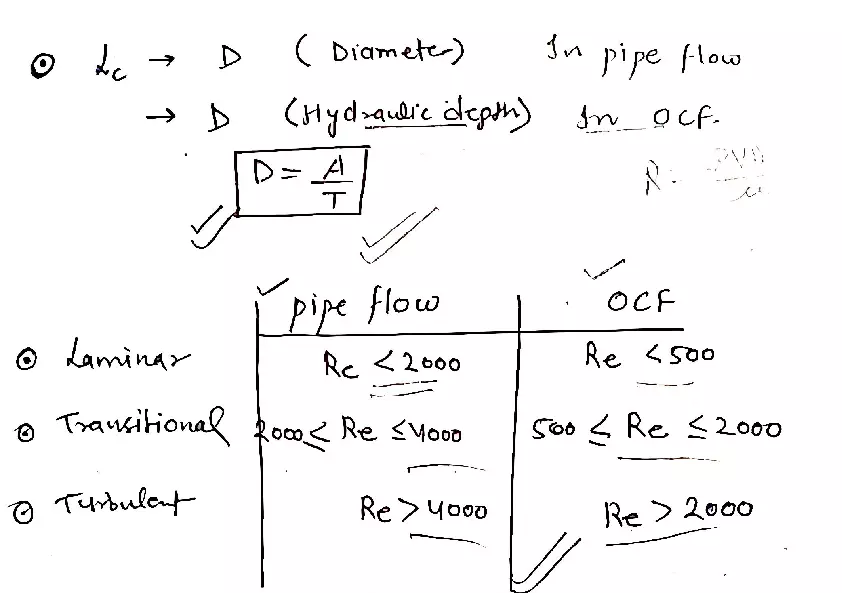 Lc → D (Diameter) In pipe flow
→ D (Hydraulic depth) In OCF.
D = A/T
pipe flow OCF
Laminar Re < 2000 Re < 500
Transitional 2000 ≤ Re ≤ 4000 500 ≤ Re ≤ 2000
Turbulent Re > 4000 Re > 2000